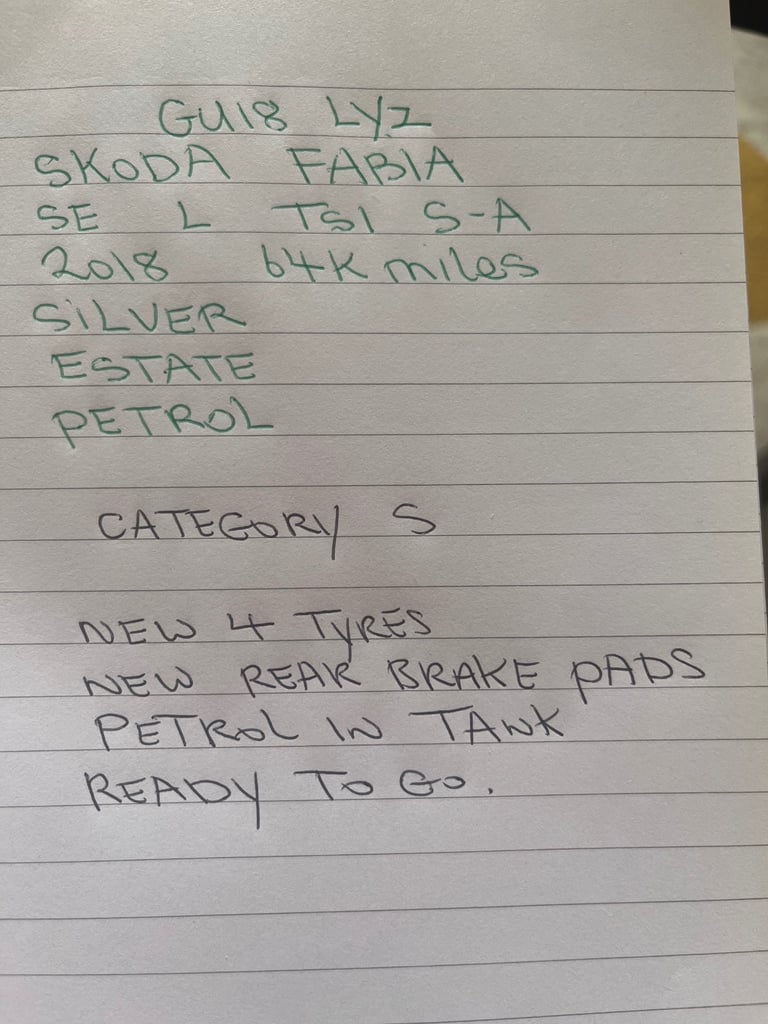 GU18 LYZ
SKODA FABIA
SE L TSI S-A
2018 64K miles
SiLVER
ESTATE
PETROL
CATEGORY S
NEW 4 TYRES
NEW REAR BRAKE PADS
PETROL IN TANK
READY TO GO.